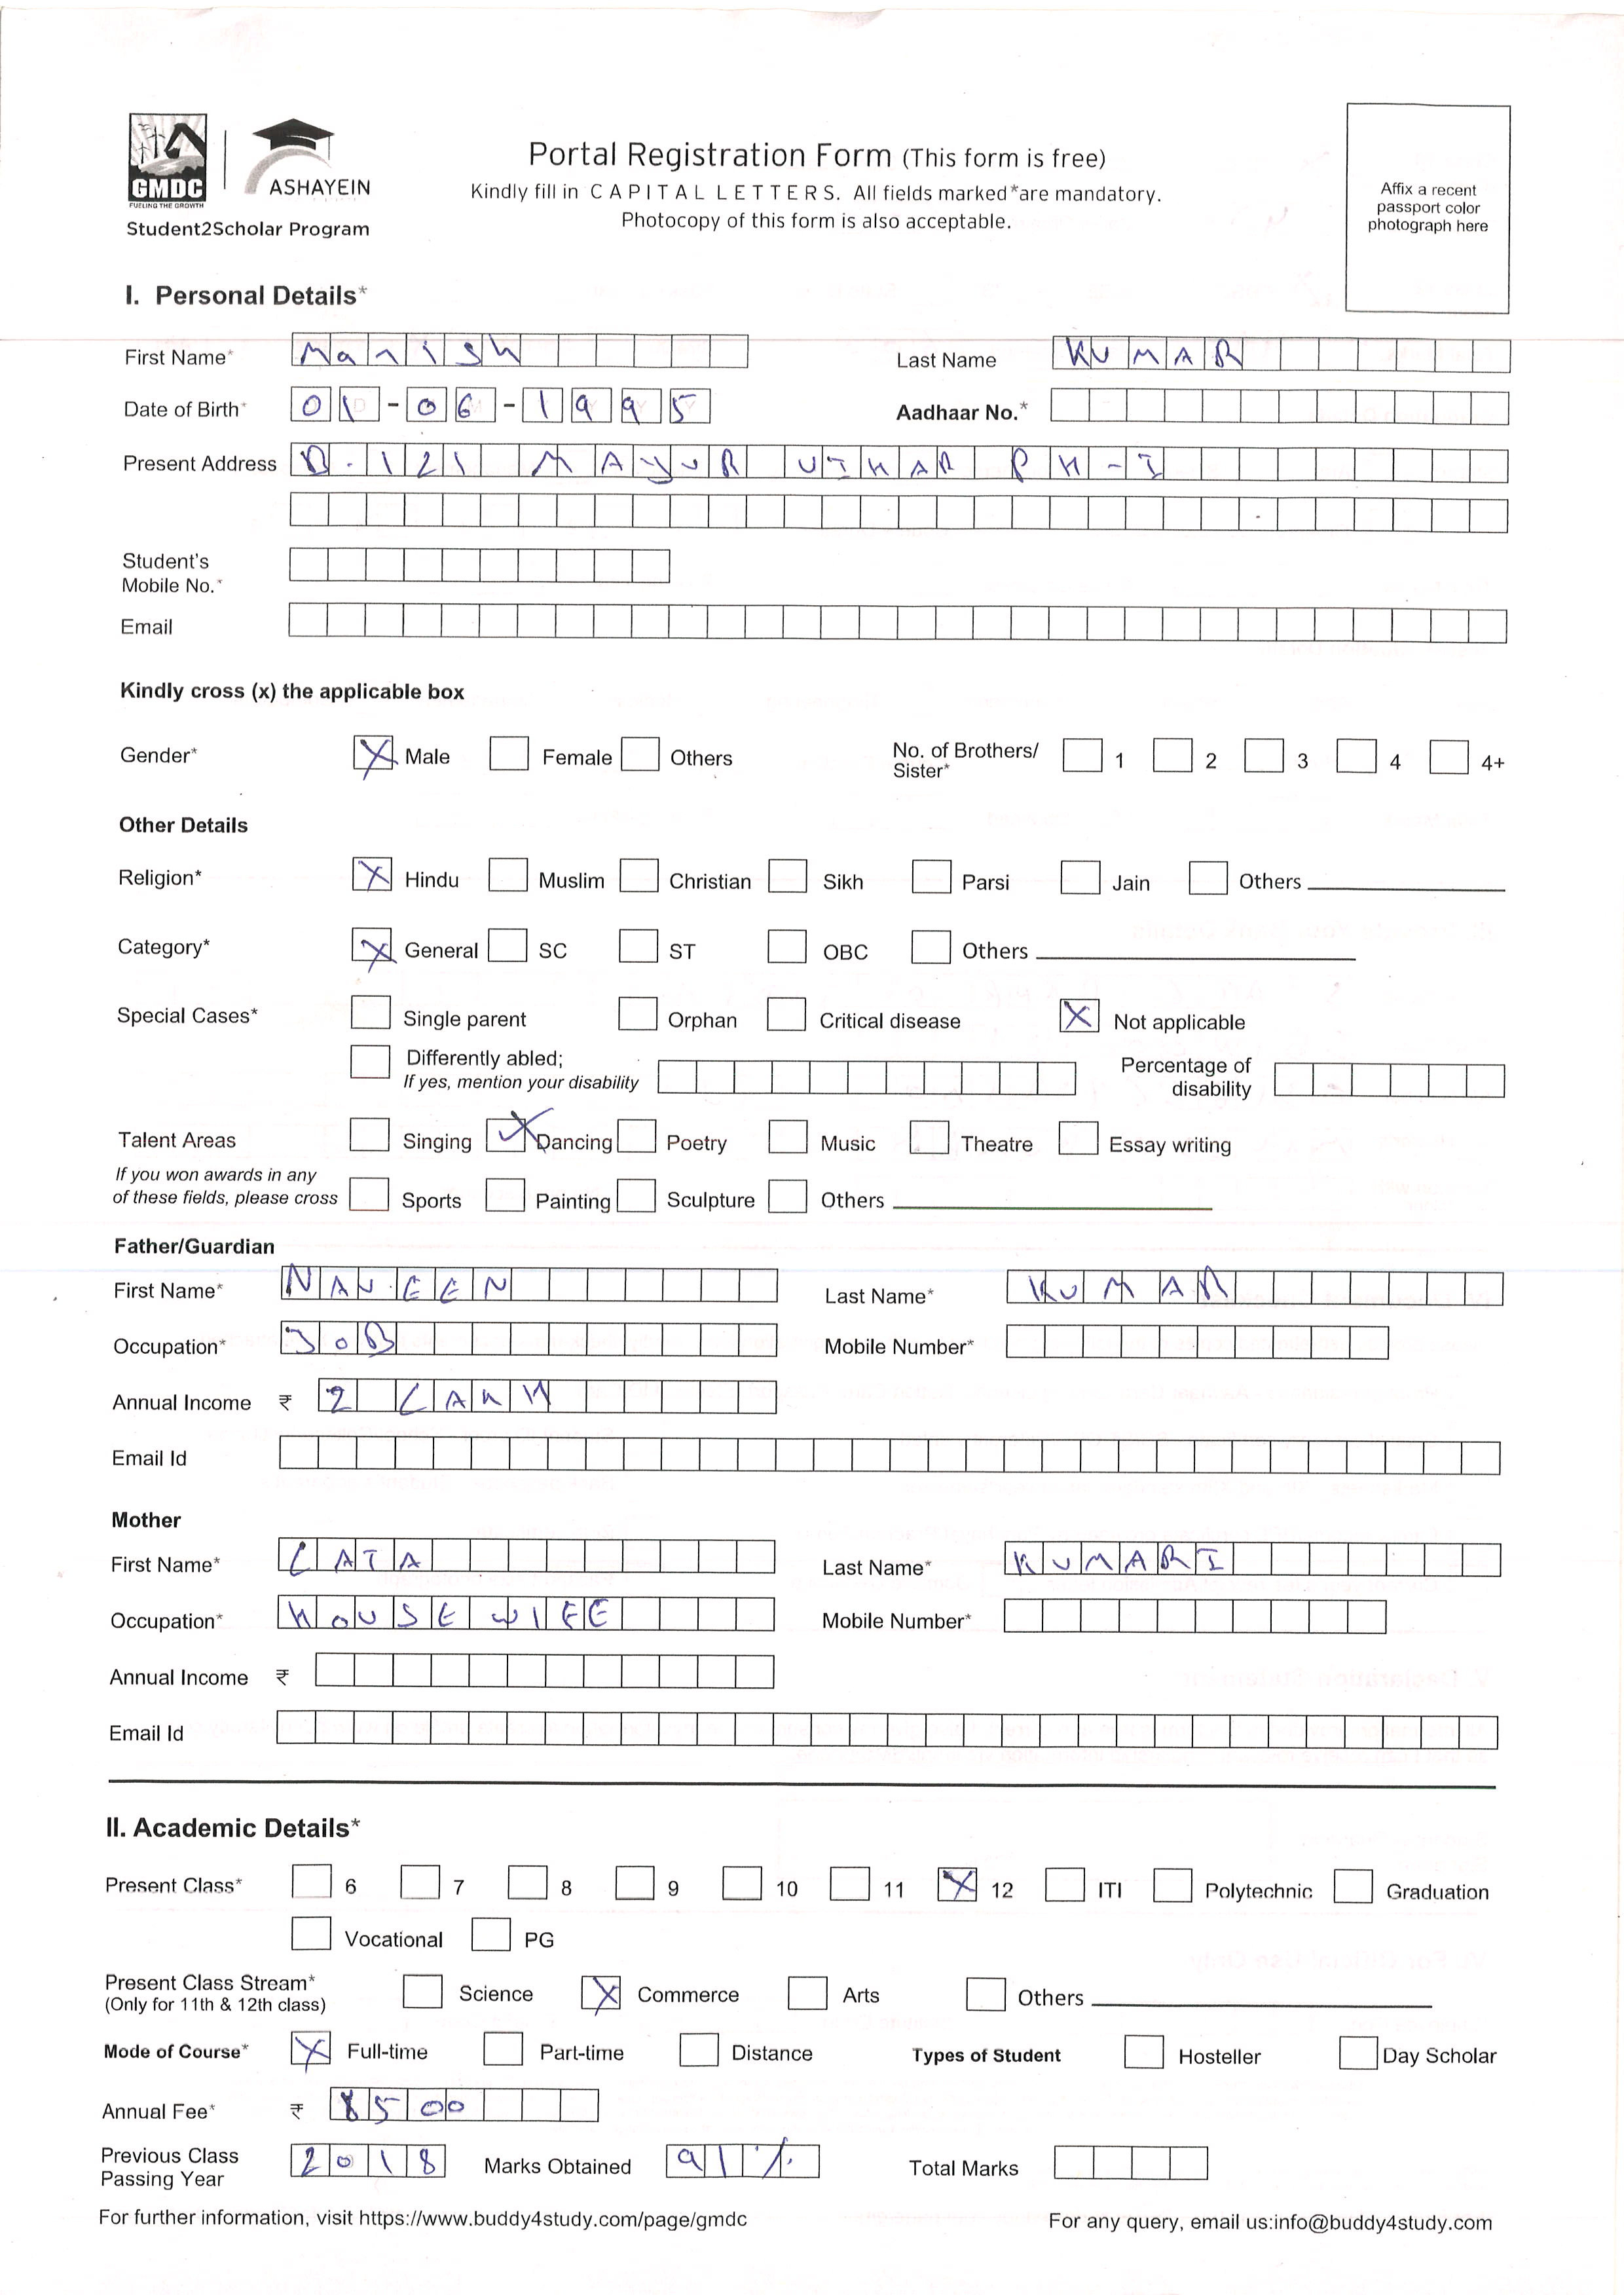 GMDC
FUELING THE GROWTH
ASHAYEIN
Student2Scholar Program
Portal Registration Form (This form is free)
Kindly fill in CAPITAL LETTERS. All fields marked*are mandatory.
Photocopy of this form is also acceptable.
Affix a recent
passport color
photograph here
I. Personal Details*
First Name* Manish Last Name KUMAR
Date of Birth* 01-06-1995 Aadhaar No.*
Present Address D-121 MAYUR VIHAR PH-I
Student's
Mobile No.*
Email
Kindly cross (x) the applicable box
Gender* X Male Female Others No. of Brothers/ Sister* 1 2 3 4 4+
Other Details
Religion* X Hindu Muslim Christian Sikh Parsi Jain Others
Category* X General SC ST OBC Others
Special Cases* Single parent Orphan Critical disease X Not applicable
Differently abled; Percentage of
If yes, mention your disability disability
Talent Areas Singing X Dancing Poetry Music Theatre Essay writing
If you won awards in any
of these fields, please cross Sports Painting Sculpture Others
Father/Guardian
First Name* NAVEEN Last Name* KUMAR
Occupation* JOB Mobile Number*
Annual Income ₹ 2 LAKH
Email Id
Mother
First Name* LATA Last Name* KUMARI
Occupation* HOUSE WIFE Mobile Number*
Annual Income ₹
Email Id
II. Academic Details*
Present Class* 6 7 8 9 10 11 X 12 ITI Polytechnic Graduation
Vocational PG
Present Class Stream* Science X Commerce Arts Others
(Only for 11th & 12th class)
Mode of Course* X Full-time Part-time Distance Types of Student Hosteller Day Scholar
Annual Fee* ₹ 8500
Previous Class
Passing Year 2018 Marks Obtained 91% Total Marks
For further information, visit https://www.buddy4study.com/page/gmdc For any query, email us:info@buddy4study.com